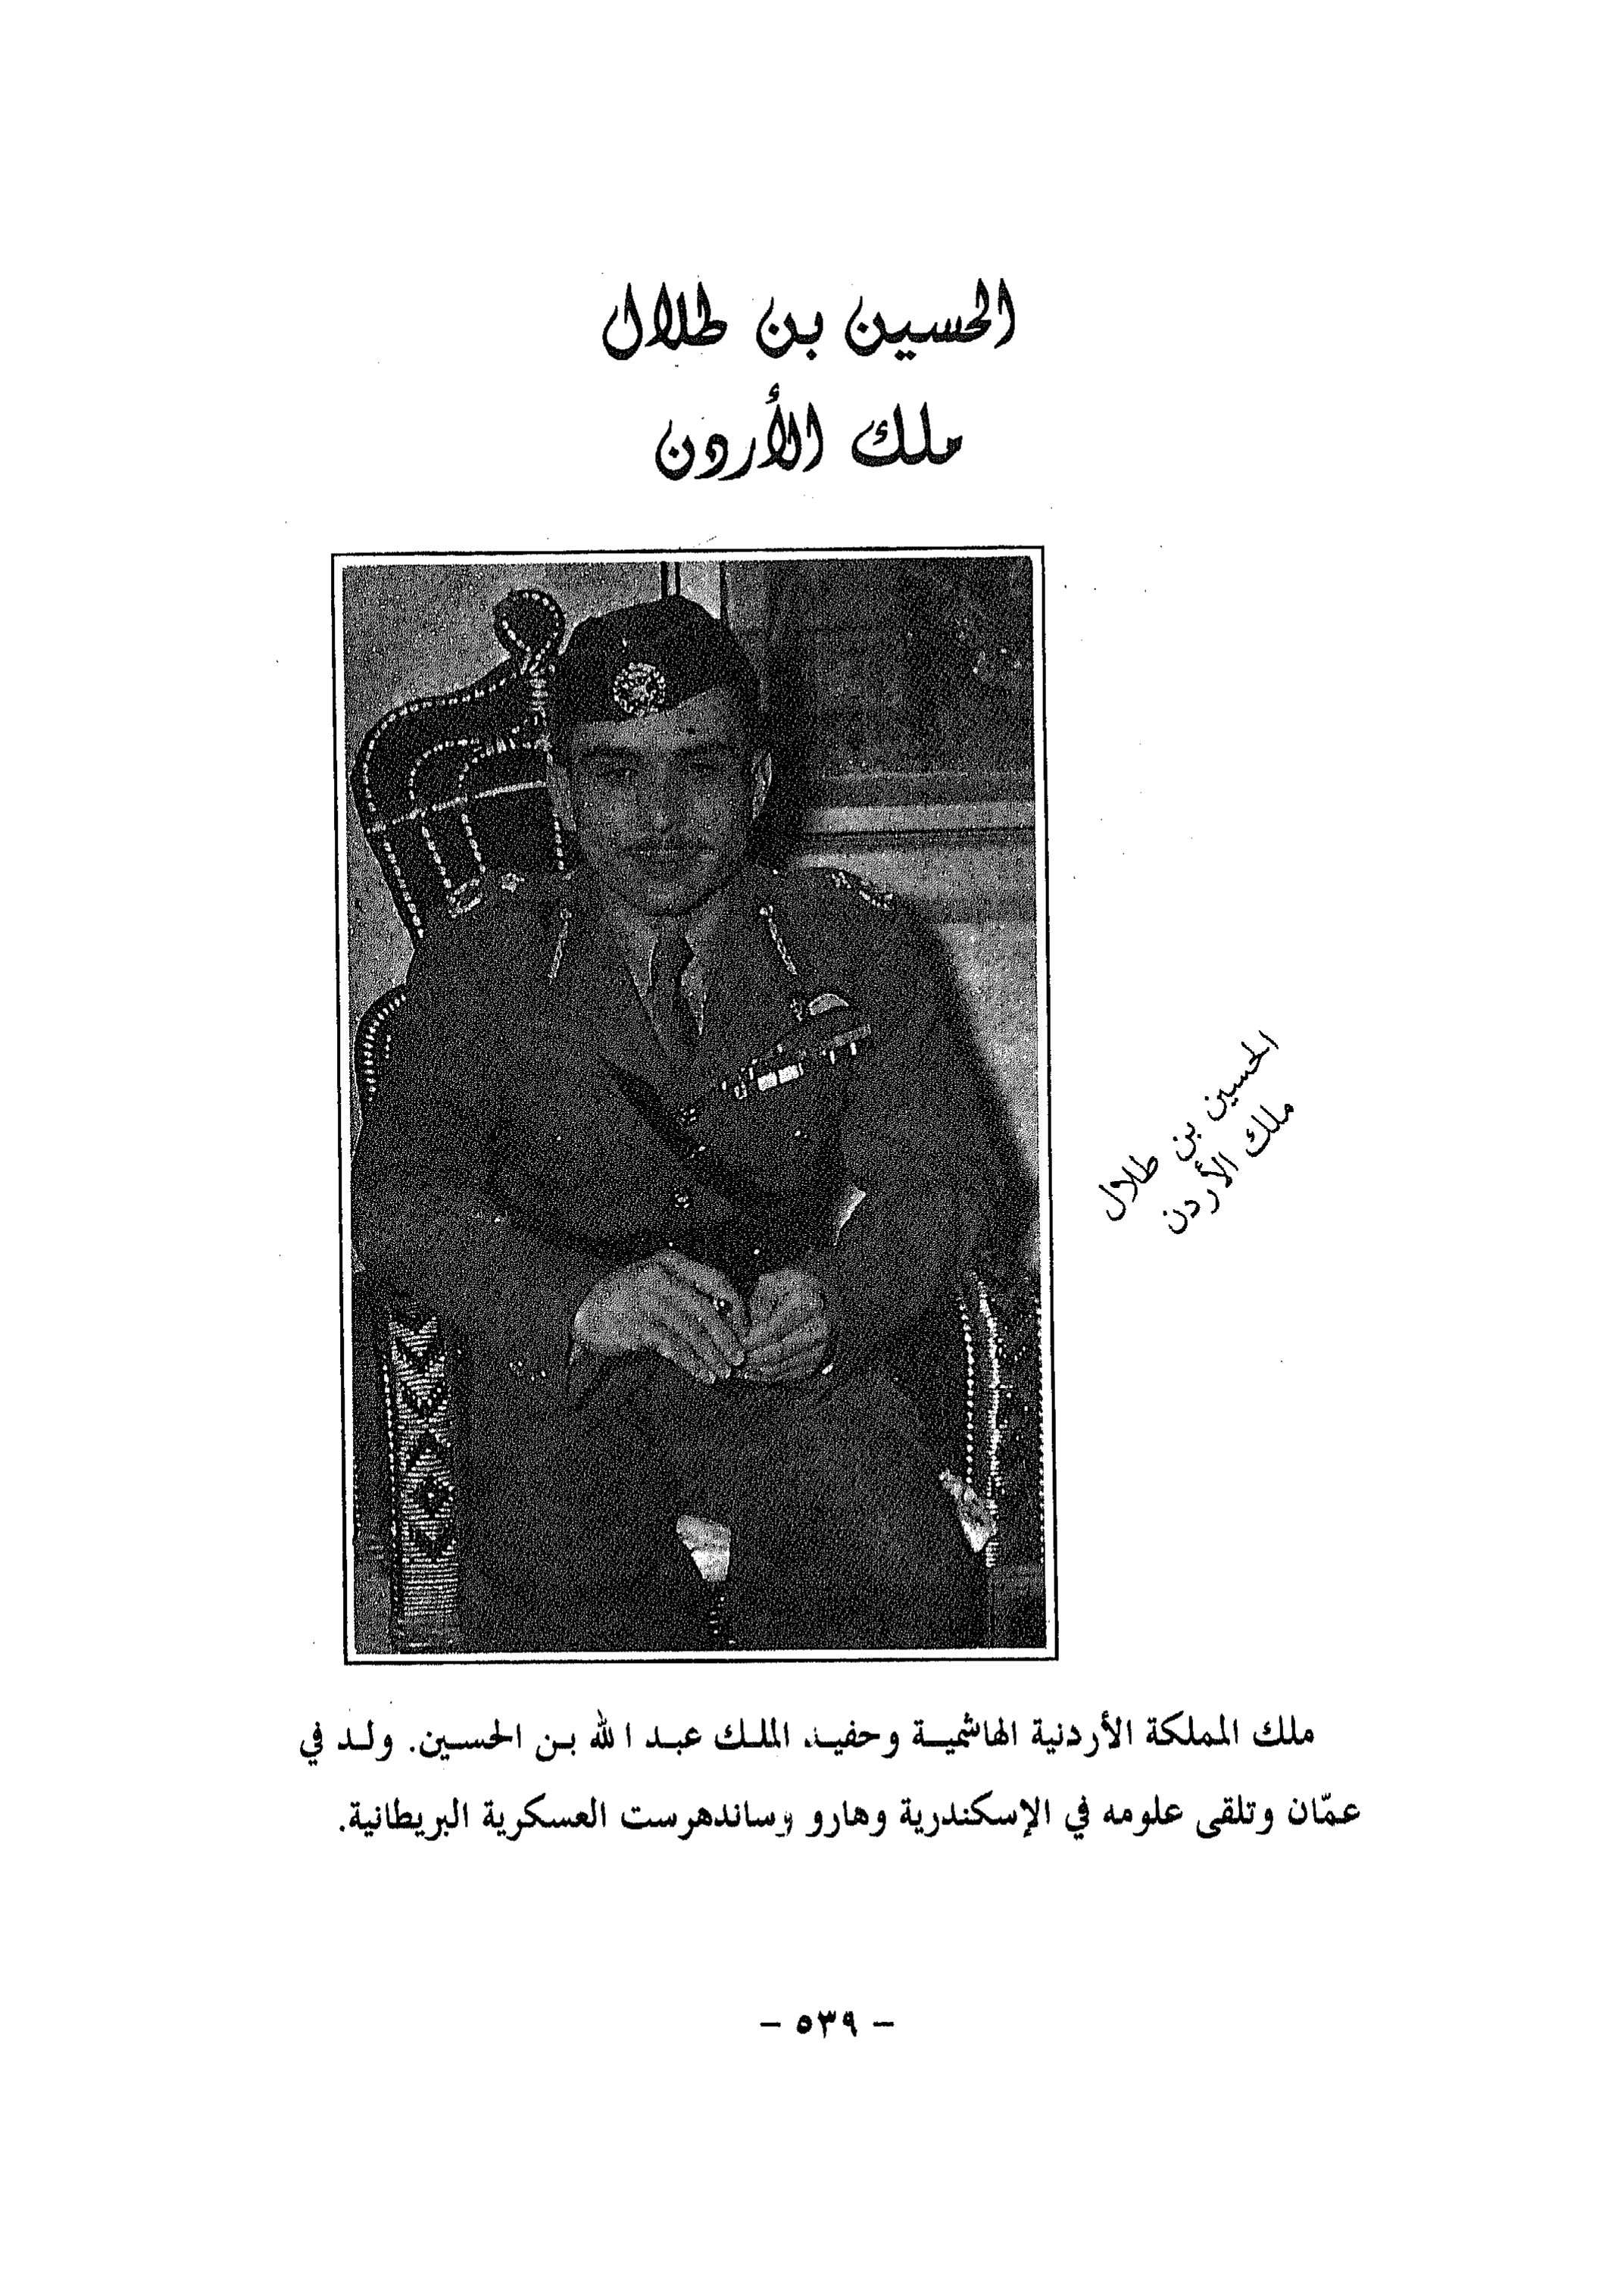 الحسين بن طلال
ملك الأردن
الحسين بن طلال
ملك الأردن
ملك المملكة الأردنية الهاشمية وحفيد الملك عبد الله بن الحسين. ولد في
عمّان وتلقى علومه في الإسكندرية وهارو وساندهرست العسكرية البريطانية.
- ٥٣٩ -